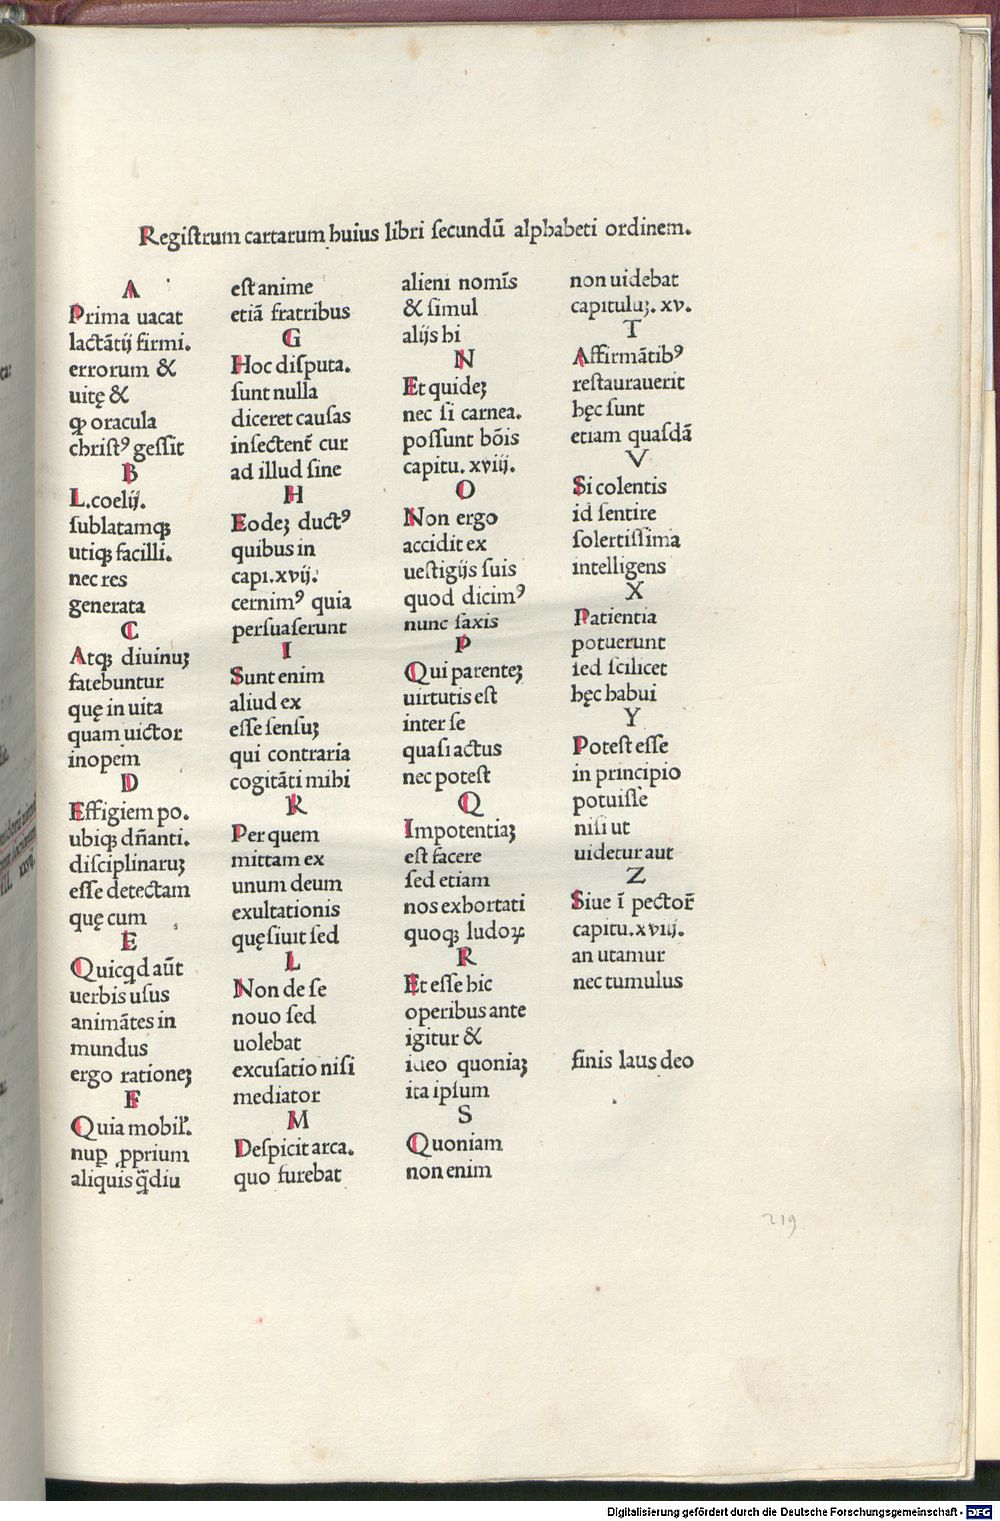 Regiſtrum cartarum huius libri ſecundū alphabeti ordinem.
A
Prima uacat
lactātij firmi.
errorum &
uitę &
ꝙ oracula
chriſtꝰ geſſit
B
L.coelij.
ſublatamqꝫ
utiqꝫ facilli.
nec res
generata
C
Atqꝫ diuinuꝫ
fatebuntur
quę in uita
quam uictor
inopem
D
Effigiem po.
ubiqꝫ dn̄anti.
diſciplinaruꝫ
eſſe detectam
quę cum
E
Quicqd aūt
uerbis uſus
animātes in
mundus
ergo rationeꝫ
F
Quia mobil̕.
nuꝑ ꝓprium
aliquis q̄diu
eſt anime
etiā fratribus
G
Hoc diſputa.
ſunt nulla
diceret cauſas
inſectent̄ cur
ad illud ſine
H
Eodeꝫ ductꝰ
quibus in
capı.xvij.
cernimꝰ quia
perſuaſerunt
I
Sunt enim
aliud ex
eſſe ſenſuꝫ
qui contraria
cogitāti mihi
K
Per quem
mittam ex
unum deum
exultationis
quę ſiuit ſed
L
Non de ſe
nouo ſed
uolebat
excuſatio niſi
mediator
M
Deſpicit arca.
quo furebat
alieni nomīs
& ſimul
alijs hi
N
Et quideꝫ
nec ſi carnea.
poſſunt bōis
capitu. xviij.
O
Non ergo
accidit ex
ueſtigijs ſuis
quod dicimꝰ
nunc ſaxis
P
Qui parenteꝫ
uirtutis eſt
inter ſe
quaſi actus
nec poteſt
Q
Impotentiaꝫ
eſt facere
ſed etiam
nos exhortati
quoqꝫ ludoꝝ
R
Et eſſe hic
operibus ante
igitur &
ideo quoniaꝫ
ita ipſum
S
Quoniam
non enim
non uidebat
capituluꝫ. xv.
T
Affirmātibꝰ
reſtaurauerit
hęc ſunt
etiam quaſdā
V
Si colentis
id ſentire
ſolertiſſima
intelligens
X
Patientia
potuerunt
ſed ſcilicet
hęc habui
Y
Poteſt eſſe
in principio
potuiſſe
niſi ut
uidetur aut
Z
Siue ī pector̄
capitu.xviij.
an utamur
nec tumulus
finis laus deo
219
Digitalisierung gefördert durch die Deutsche Forschungsgemeinschaft - DFG